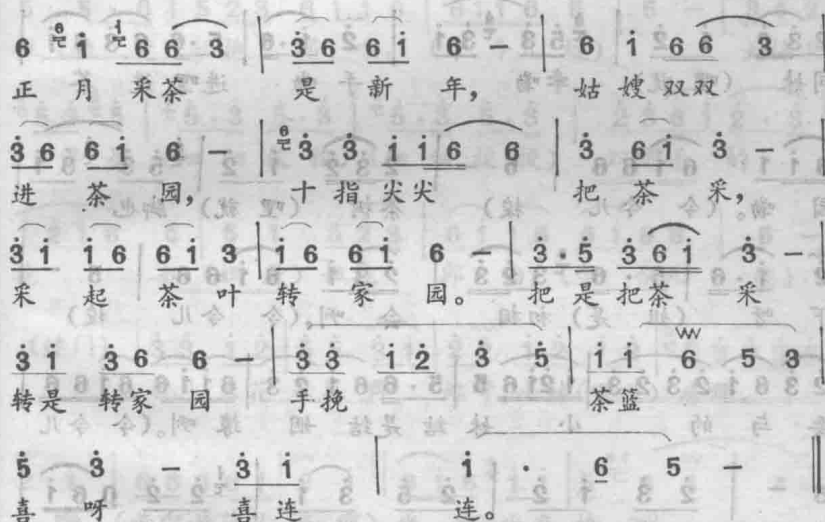 6 6 i 1 6 6 3 | 3 6 6 i 6 – | 6 i 6 6 3
正 月 采茶 是 新 年, 姑 嫂 双双
3 6 6 i 6 – | 6 3 3 i i 6 6 | 3 6 i 3 –
进 茶 园, 十 指 尖尖 把 茶 采,
3 i i 6 6 i 3 | i 6 6 i 6 – | 3 · 5 3 6 i 3 –
采 起 茶 叶 转 家 园。 把 是 把茶 采
3 1 3 6 6 – | 3 3 i 2 3 5 | i i 6 5 3
转是 转家 园 手挽 茶篮
5 3 – 3 i | i · 6 5 –
喜 呀 喜 连 连。